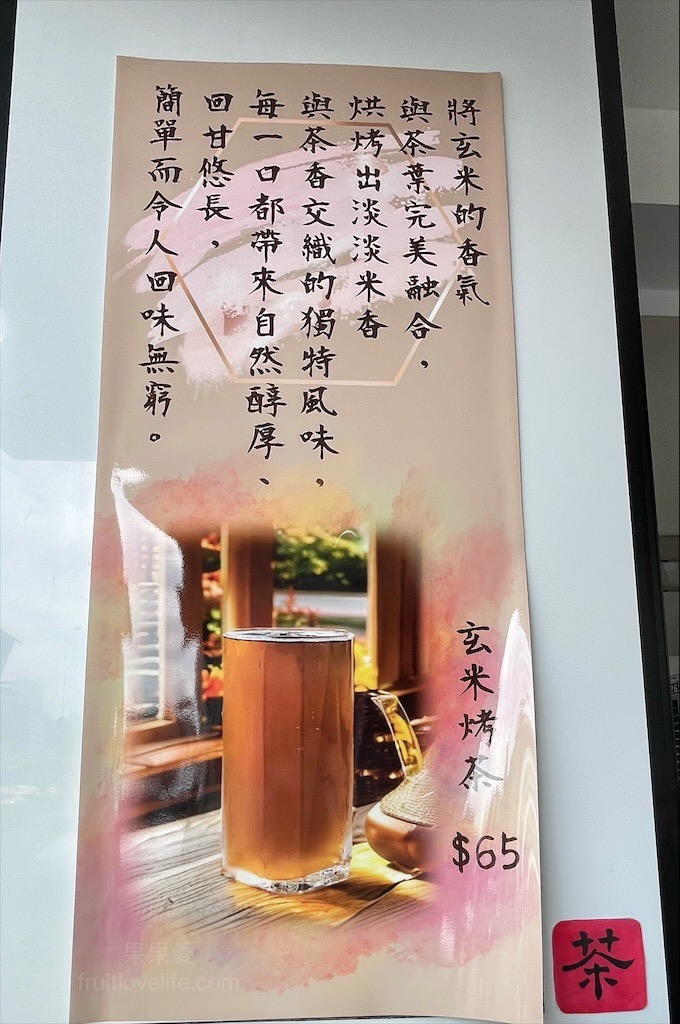 將玄米的香氣
與茶葉完美融合，
烘烤出淡淡米香
與茶香交織的獨特風味，
每一口都帶來自然醇厚、
回甘悠長，
簡單而令人回味無窮。
玄米烤茶
$65
茶
果果愛
fruitlovelife.com